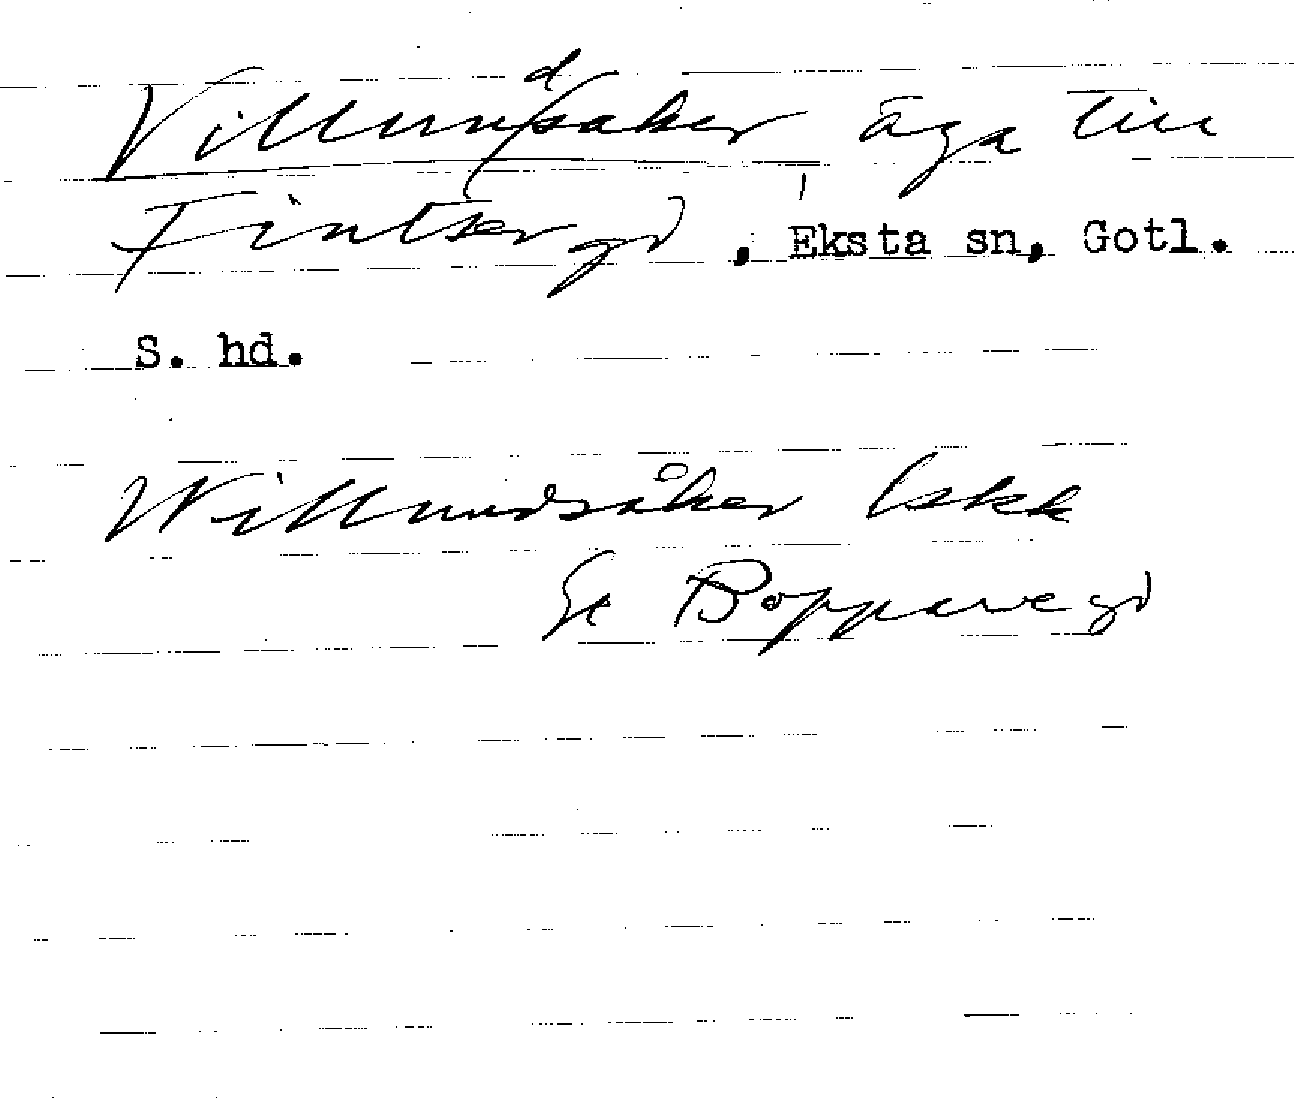 Villundsaker äga till
gd, Eksta sn, Gotl.
S. hd.
Willundsåker Lskk
Se Bopparve gd